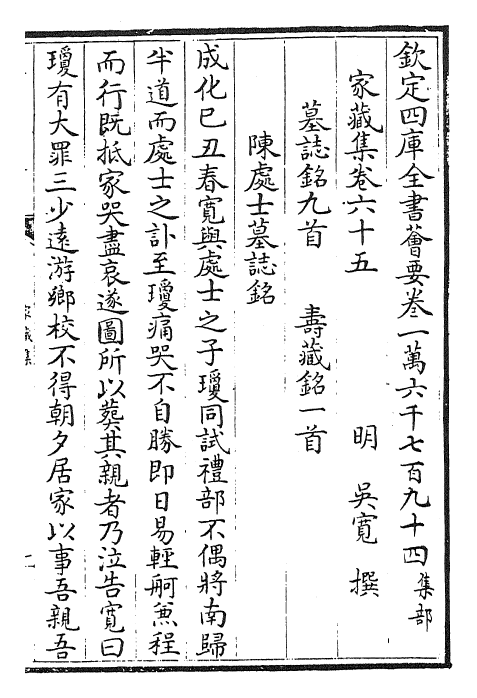 欽定四庫全書薈要卷一萬六千七百九十四集部
家藏集卷六十五　明　吳寬　撰
墓誌銘九首　壽藏銘一首
陳處士墓誌銘
成化已丑春寬與處士之子瓊同試禮部不偶將南歸
半道而處士之訃至瓊痛哭不自勝即日易輕舸兼程
而行既抵家哭盡哀遂圖所以葬其親者乃泣告寬曰
瓊有大罪三少逺游鄉校不得朝夕居家以事吾親吾
家藏集